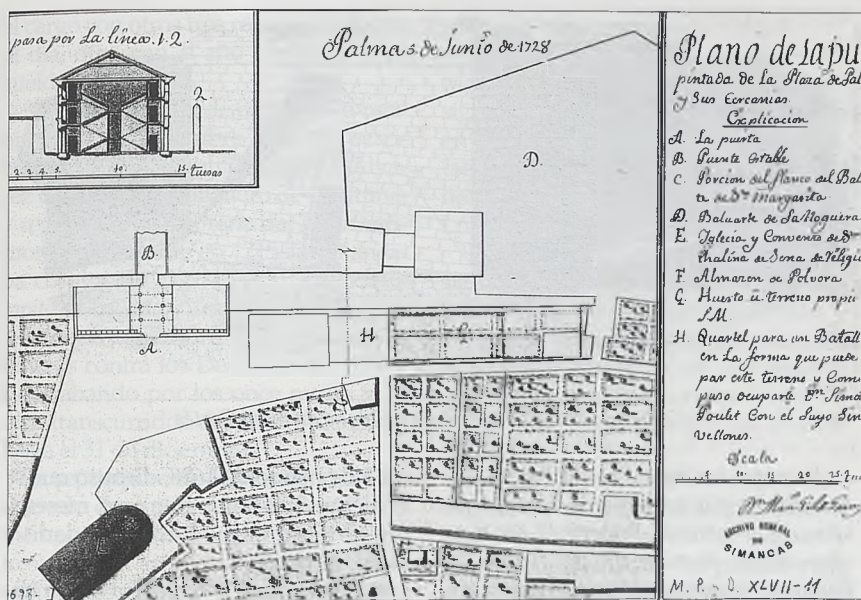 pasa por La linea. 1. 2.
2
2. 3. 4. 5. 10. 15. tuesas
Palma 5. de Junio de 1728
D.
B.
A
H
G
E
698.
Plano de la pu
pintada de La Plaza de Pal
y Sus Cercanias
Explicacion
A. La puerta
B. Puente estable
C. Porcion del flanco del Bal
te de Sta Margarita
D. Baluarte de Sa Noguera
E. Iglecia y Convento de Sta
thalina de Sena de Religio
F. Almazen de Polvora
G. Huerto u terreno propi
S.M.
H. Quartel para un Batall
en La forma que puede
par este terreno y Com
puso ocuparle Dn Simo
Poulet Con el Suyo Sin
Vellones.
Scala
5. 10. 15 20 25. t
ARCHIVO GENERAL
DE
SIMANCAS
M. P. y D. XLVII-11